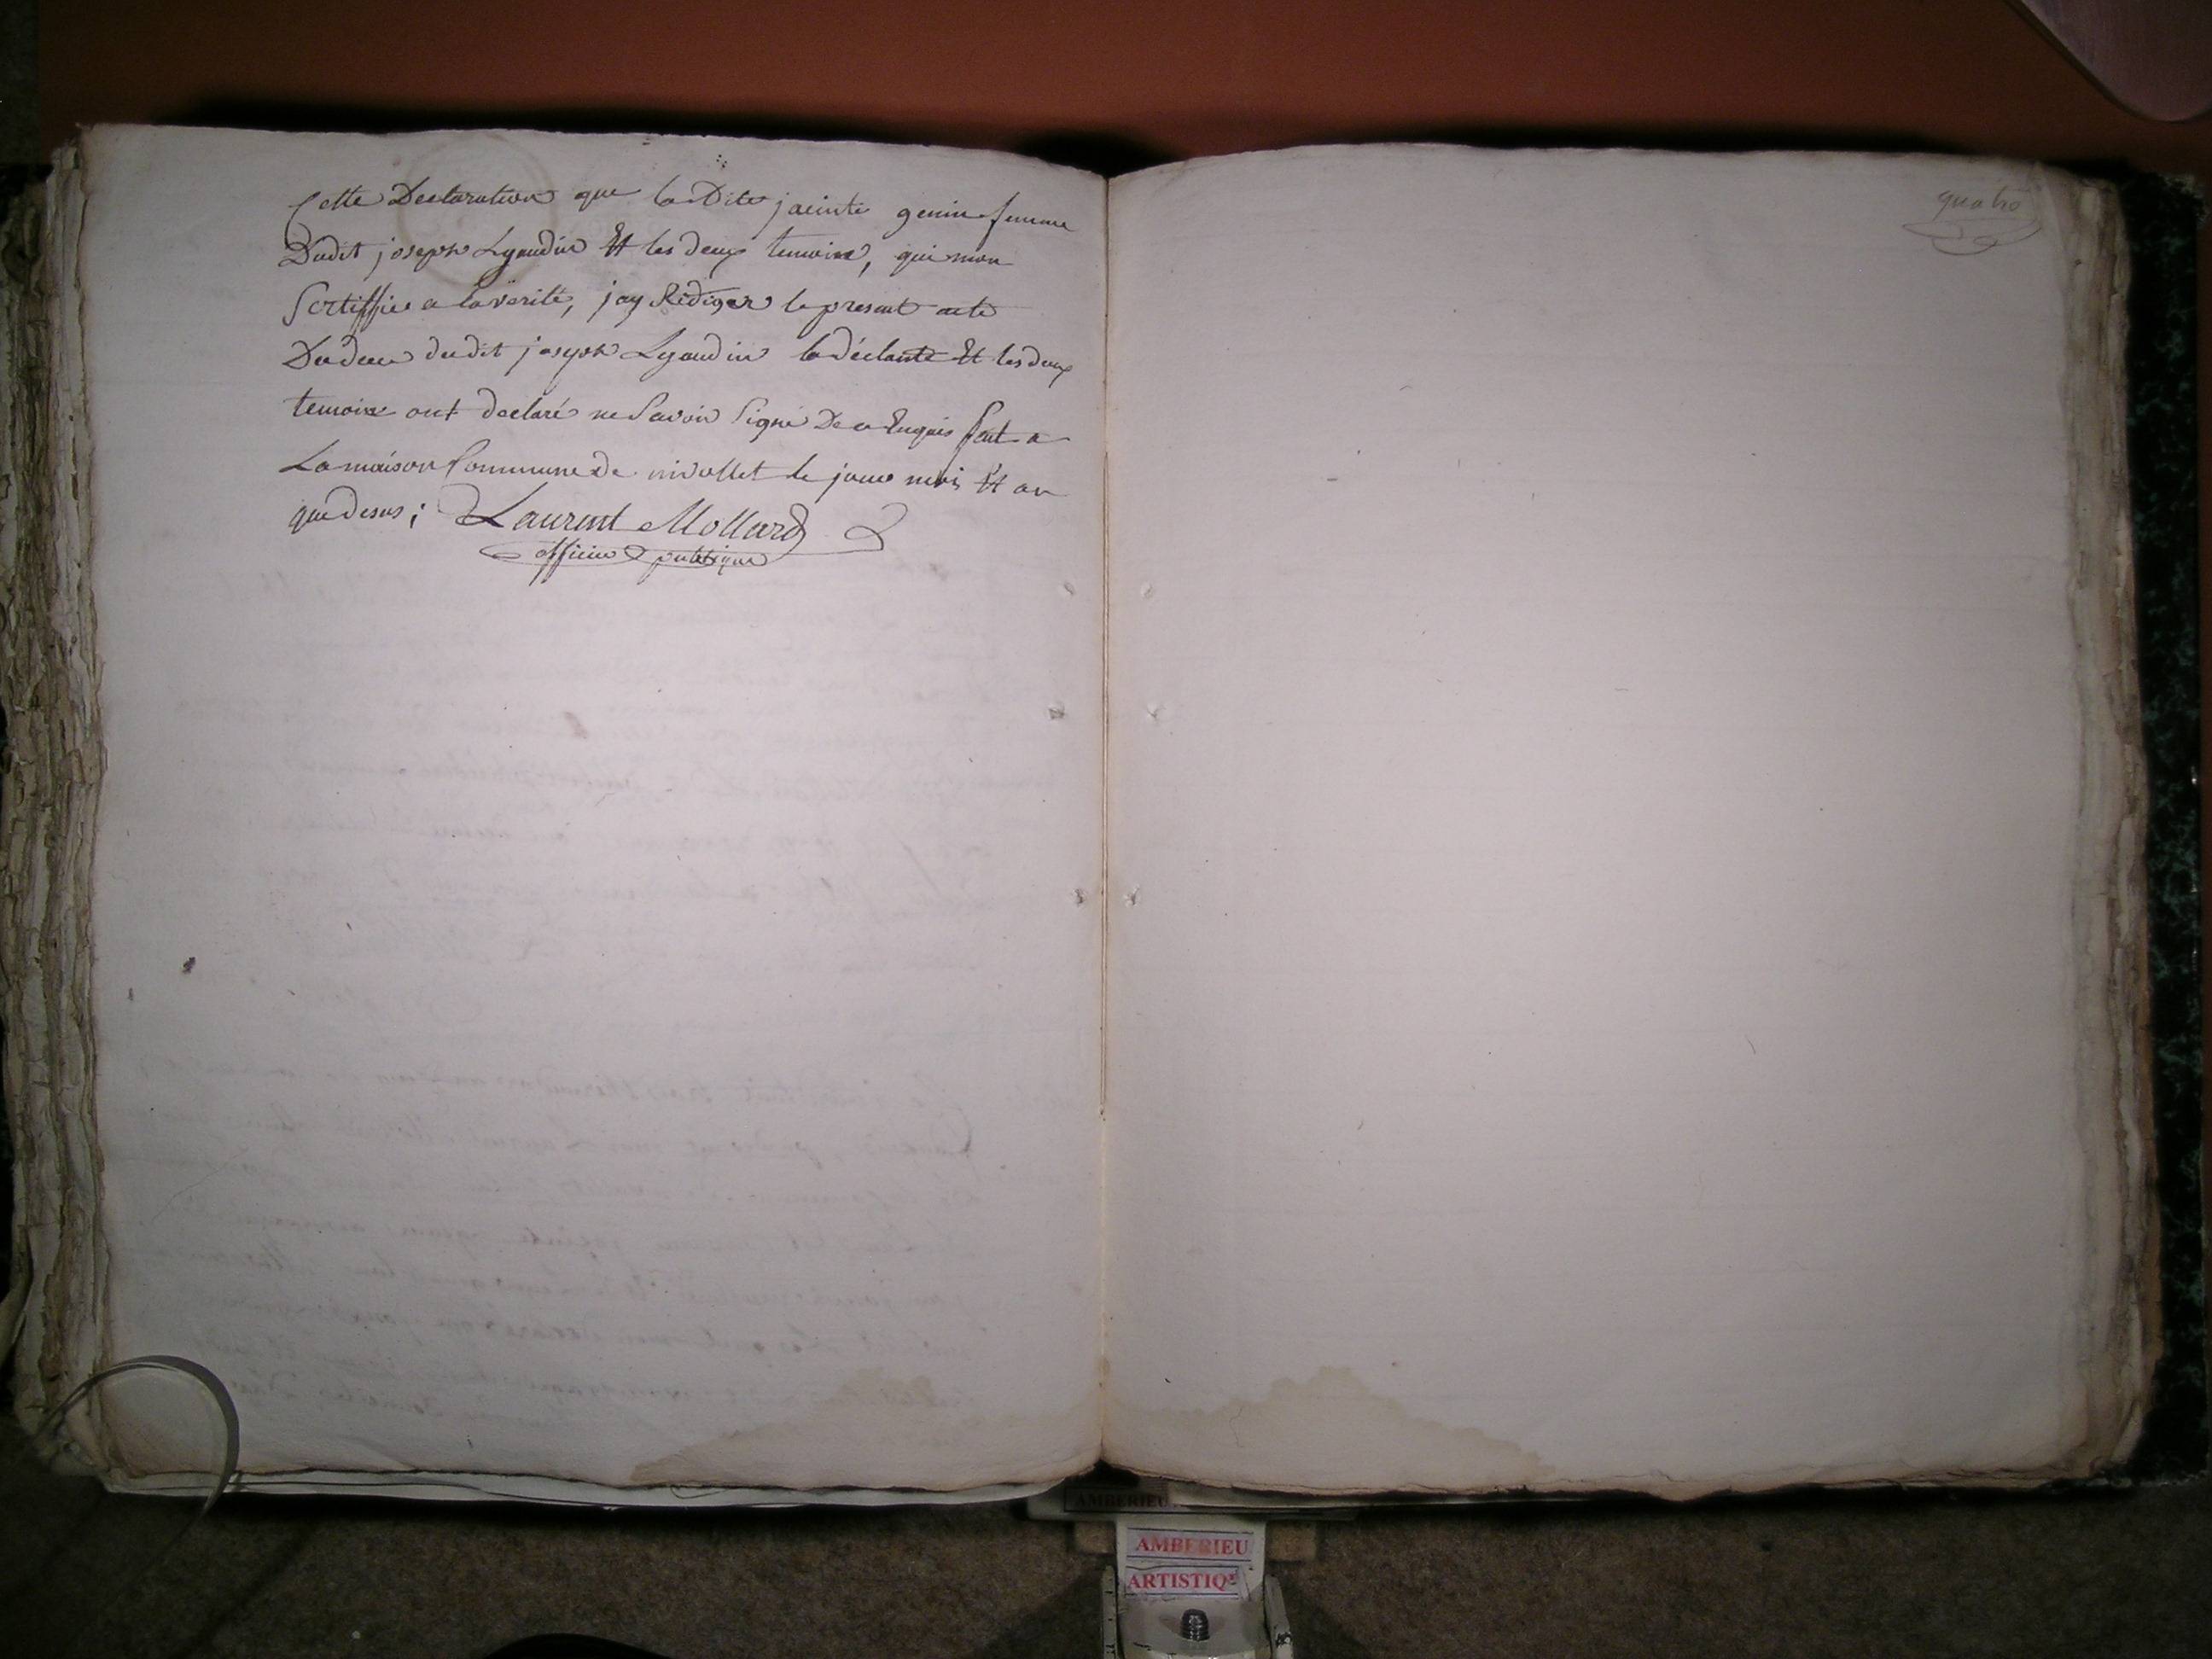 Cette Declaration que la Dite jacinte genin femme
Dudit joseph Lyaudin Et les deux temoins, qui mon
Sertiffiée a la verité, jay Rediger le present acte
De deces dudit joseph Lyaudin la déclante Et les deux
temoins ont declaré ne Savoir Signé De ce Enquis fait a
La maison Commune de nivollet le jour mois Et an
que desus; Laurent Mollard
officier publique
quatre
AMBERIEU
AMBERIEU
ARTISTIQ